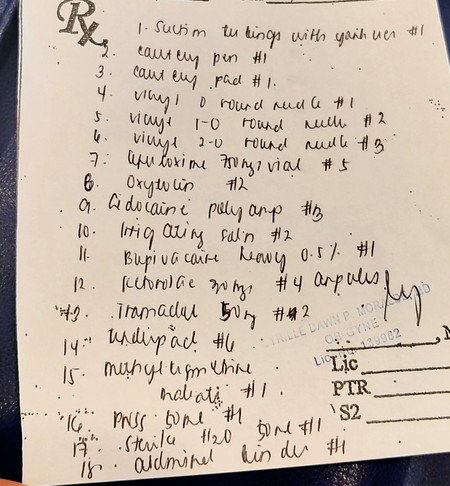 Rx
1. Suction tubings with yankuer #1
2. cautery pen #1
3. cautery pad #1.
4. vicryl 0 round needle #1
5. vicryl 1-0 round needle #2
6. vicryl 2-0 round needle #3
7. Cefuroxime 750mg vial #5
8. Oxytocin #2
9. Lidocaine polyamp #3
10. Irrigating saln #2
11. Bupivacaine heavy 0.5% #1
12. Ketorolac 30mg #4 ampules
13. Tramadol 50mg #2
14. Underpad #6
15. methylergometrine
maleate #1.
16. PNSS 50ml #1
17. Sterile #20 50ml #1
18. abdominal binder #1
DAWN P. MORALES, MD
OB-GYNE
LIC NO. 139982
Lic
PTR
S2